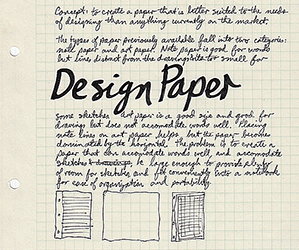 Concept: to create a paper that is better suited to the needs
of designing than anything currently on the market.
The types of paper previously available fall into two categories:
note paper and art paper. Note paper is good for words
but lines distract from the drawings; it's too small for
Design Paper
Some sketches. Art paper is a good size and good for
drawings but does not accomodate words well. Placing
note lines on art paper helps, but the paper becomes
dominated by the horizontal. The problem is to create a
paper that can accomodate words well, and accomodate
sketches be large enough to provide plenty
of room for sketches and fit conveniently into a notebook
for ease of organization and portability.